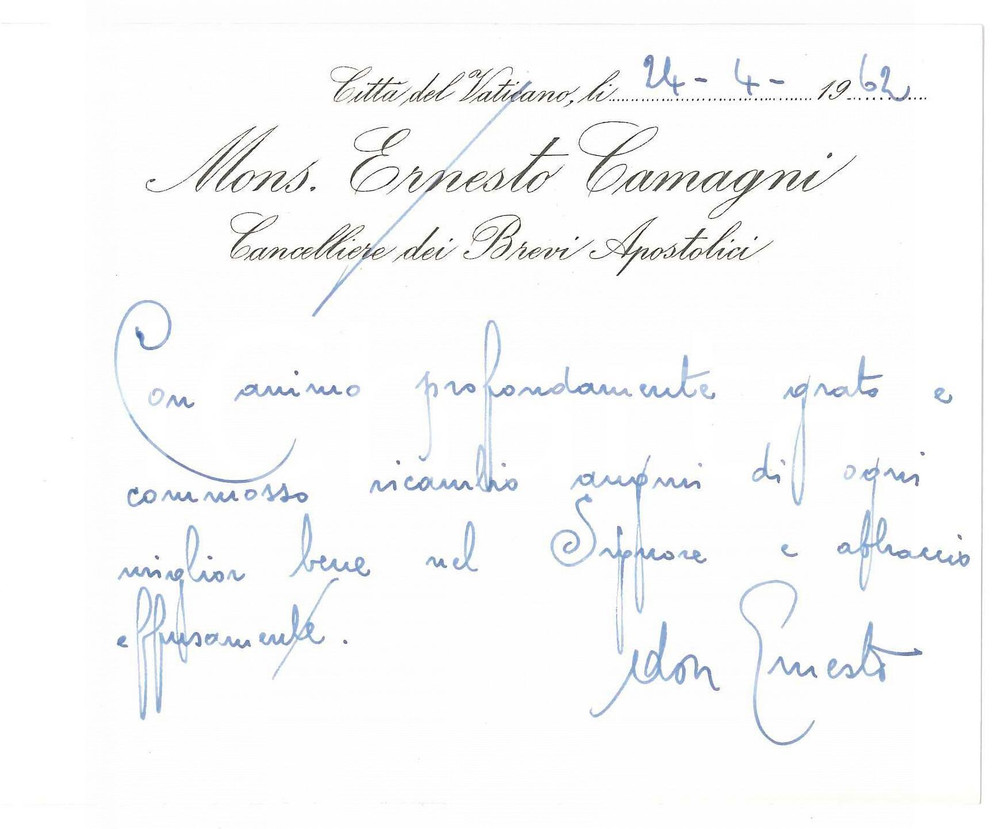 Città del Vaticano, li 24 - 4 - 1962
Mons. Ernesto Camagni
Cancelliere dei Brevi Apostolici
Con animo profondamente grato e
commosso ricambio auguri di ogni
miglior bene nel Signore e abbraccio
effusamente.
don Ernesto